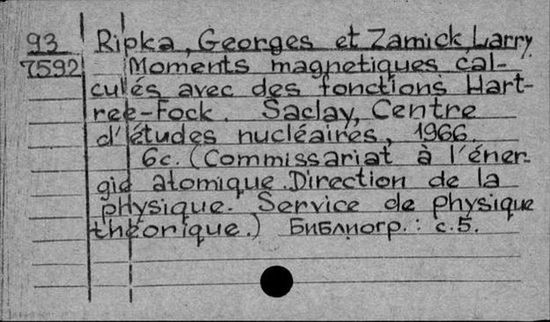 93 Ripka, Georges et Zamick, Larry
7592 Moments magnetiques cal-
culés avec des fonctions Hart-
ree-Fock. Saclay, Centre
d'études nucléaires, 1966.
6c. (Commissariat à l'éner-
gie atomique. Direction de la
physique. Service de physique
théorique.) Библиогр.: с.5.